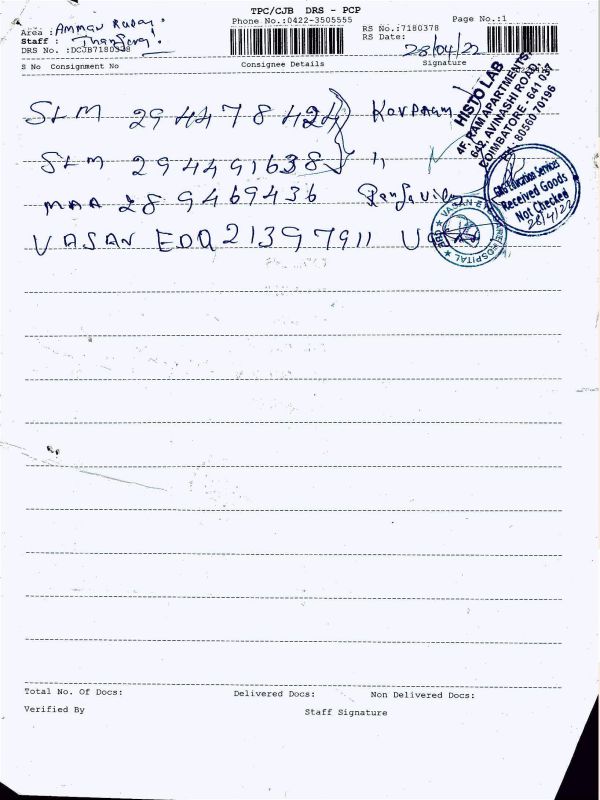 TPC/CJB DRS - PCP
Phone No.:0422-3505555
Page No.:1
RS No.:7180378
RS Date: 28/04/22
Area :
Staff :
DRS No. :DCJB7180338
S No Consignment No
Consignee Details
Signature
SLM 294478424
SLM 294491638 "
MAA 289469436
VASAN EDQ 21397911
HISTO LAB
4F, RAM APARTMENTS,
642, AVINASHI ROAD,
COIMBATORE - 641 037
80560 70196
Education Services
Received Goods
Not Checked
28/4/22
VASAN EYE CARE HOSPITAL
Total No. Of Docs:
Delivered Docs:
Non Delivered Docs:
Verified By
Staff Signature